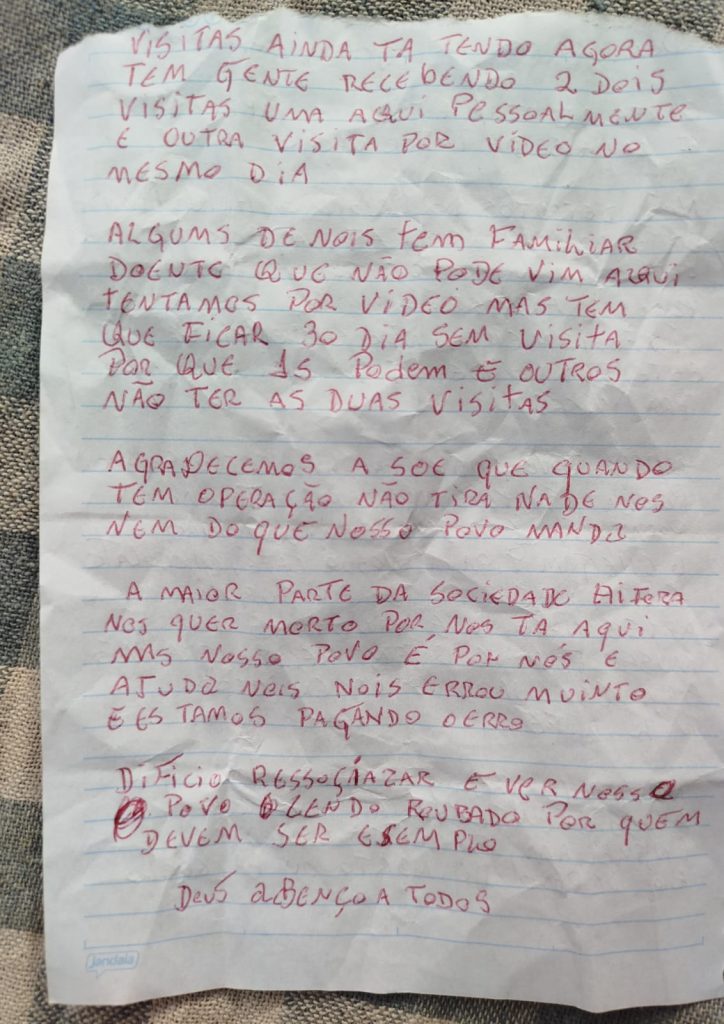 VISITAS AINDA TA TENDO AGORA
TEM GENTE RECEBENDO 2 DOIS
VISITAS UMA AQUI PESSOALMENTE
E OUTRA VISITA POR VIDEO NO
MESMO DIA
ALGUMS DE NOIS TEM FAMILIAR
DOENTE QUE NÃO PODE VIM AQUI
TENTAMOS POR VIDEO MAS TEM
QUE FICAR 30 DIA SEM VISITA
POR QUE 1S PODEM E OUTROS
NÃO TER AS DUAS VISITAS
AGRADECEMOS A SOE QUE QUANDO
TEM OPERAÇÃO NÃO TIRA NADE NOS
NEM DO QUE NOSSO POVO MANDA
A MAIOR PARTE DA SOCIEDADE AI FORA
NOS QUER MORTO POR NOS TÁ AQUI
MAS NOSSO POVO É POR NÓS E
AJUDA NOIS NOIS ERROU MUINTO
E ESTAMOS PAGANDO O ERRO
DIFICIO RESSOCIAZAR E VER NOSSO
POVO CENDO ROUBADO POR QUEM
DEVEM SER ESEMPLO
DEUS ABENÇOA TODOS
jandaia